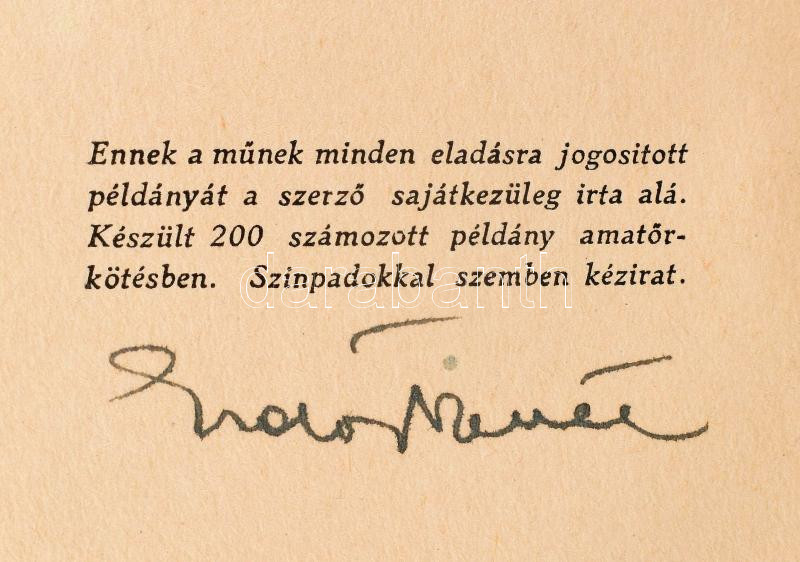 Ennek a műnek minden eladásra jogositott
példányát a szerző sajátkezüleg irta alá.
Készült 200 számozott példány amatőr-
kötésben. Szinpadokkal szemben kézirat.
darabanth
Erdős Renée